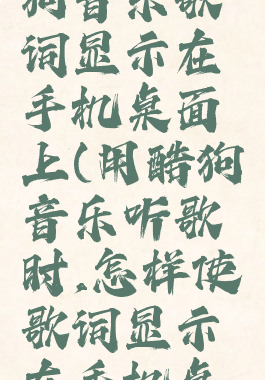 狗音乐歌
词显示在
手机桌面
上(用酷狗
音乐听歌
时,怎样使
歌词显示
在手机桌